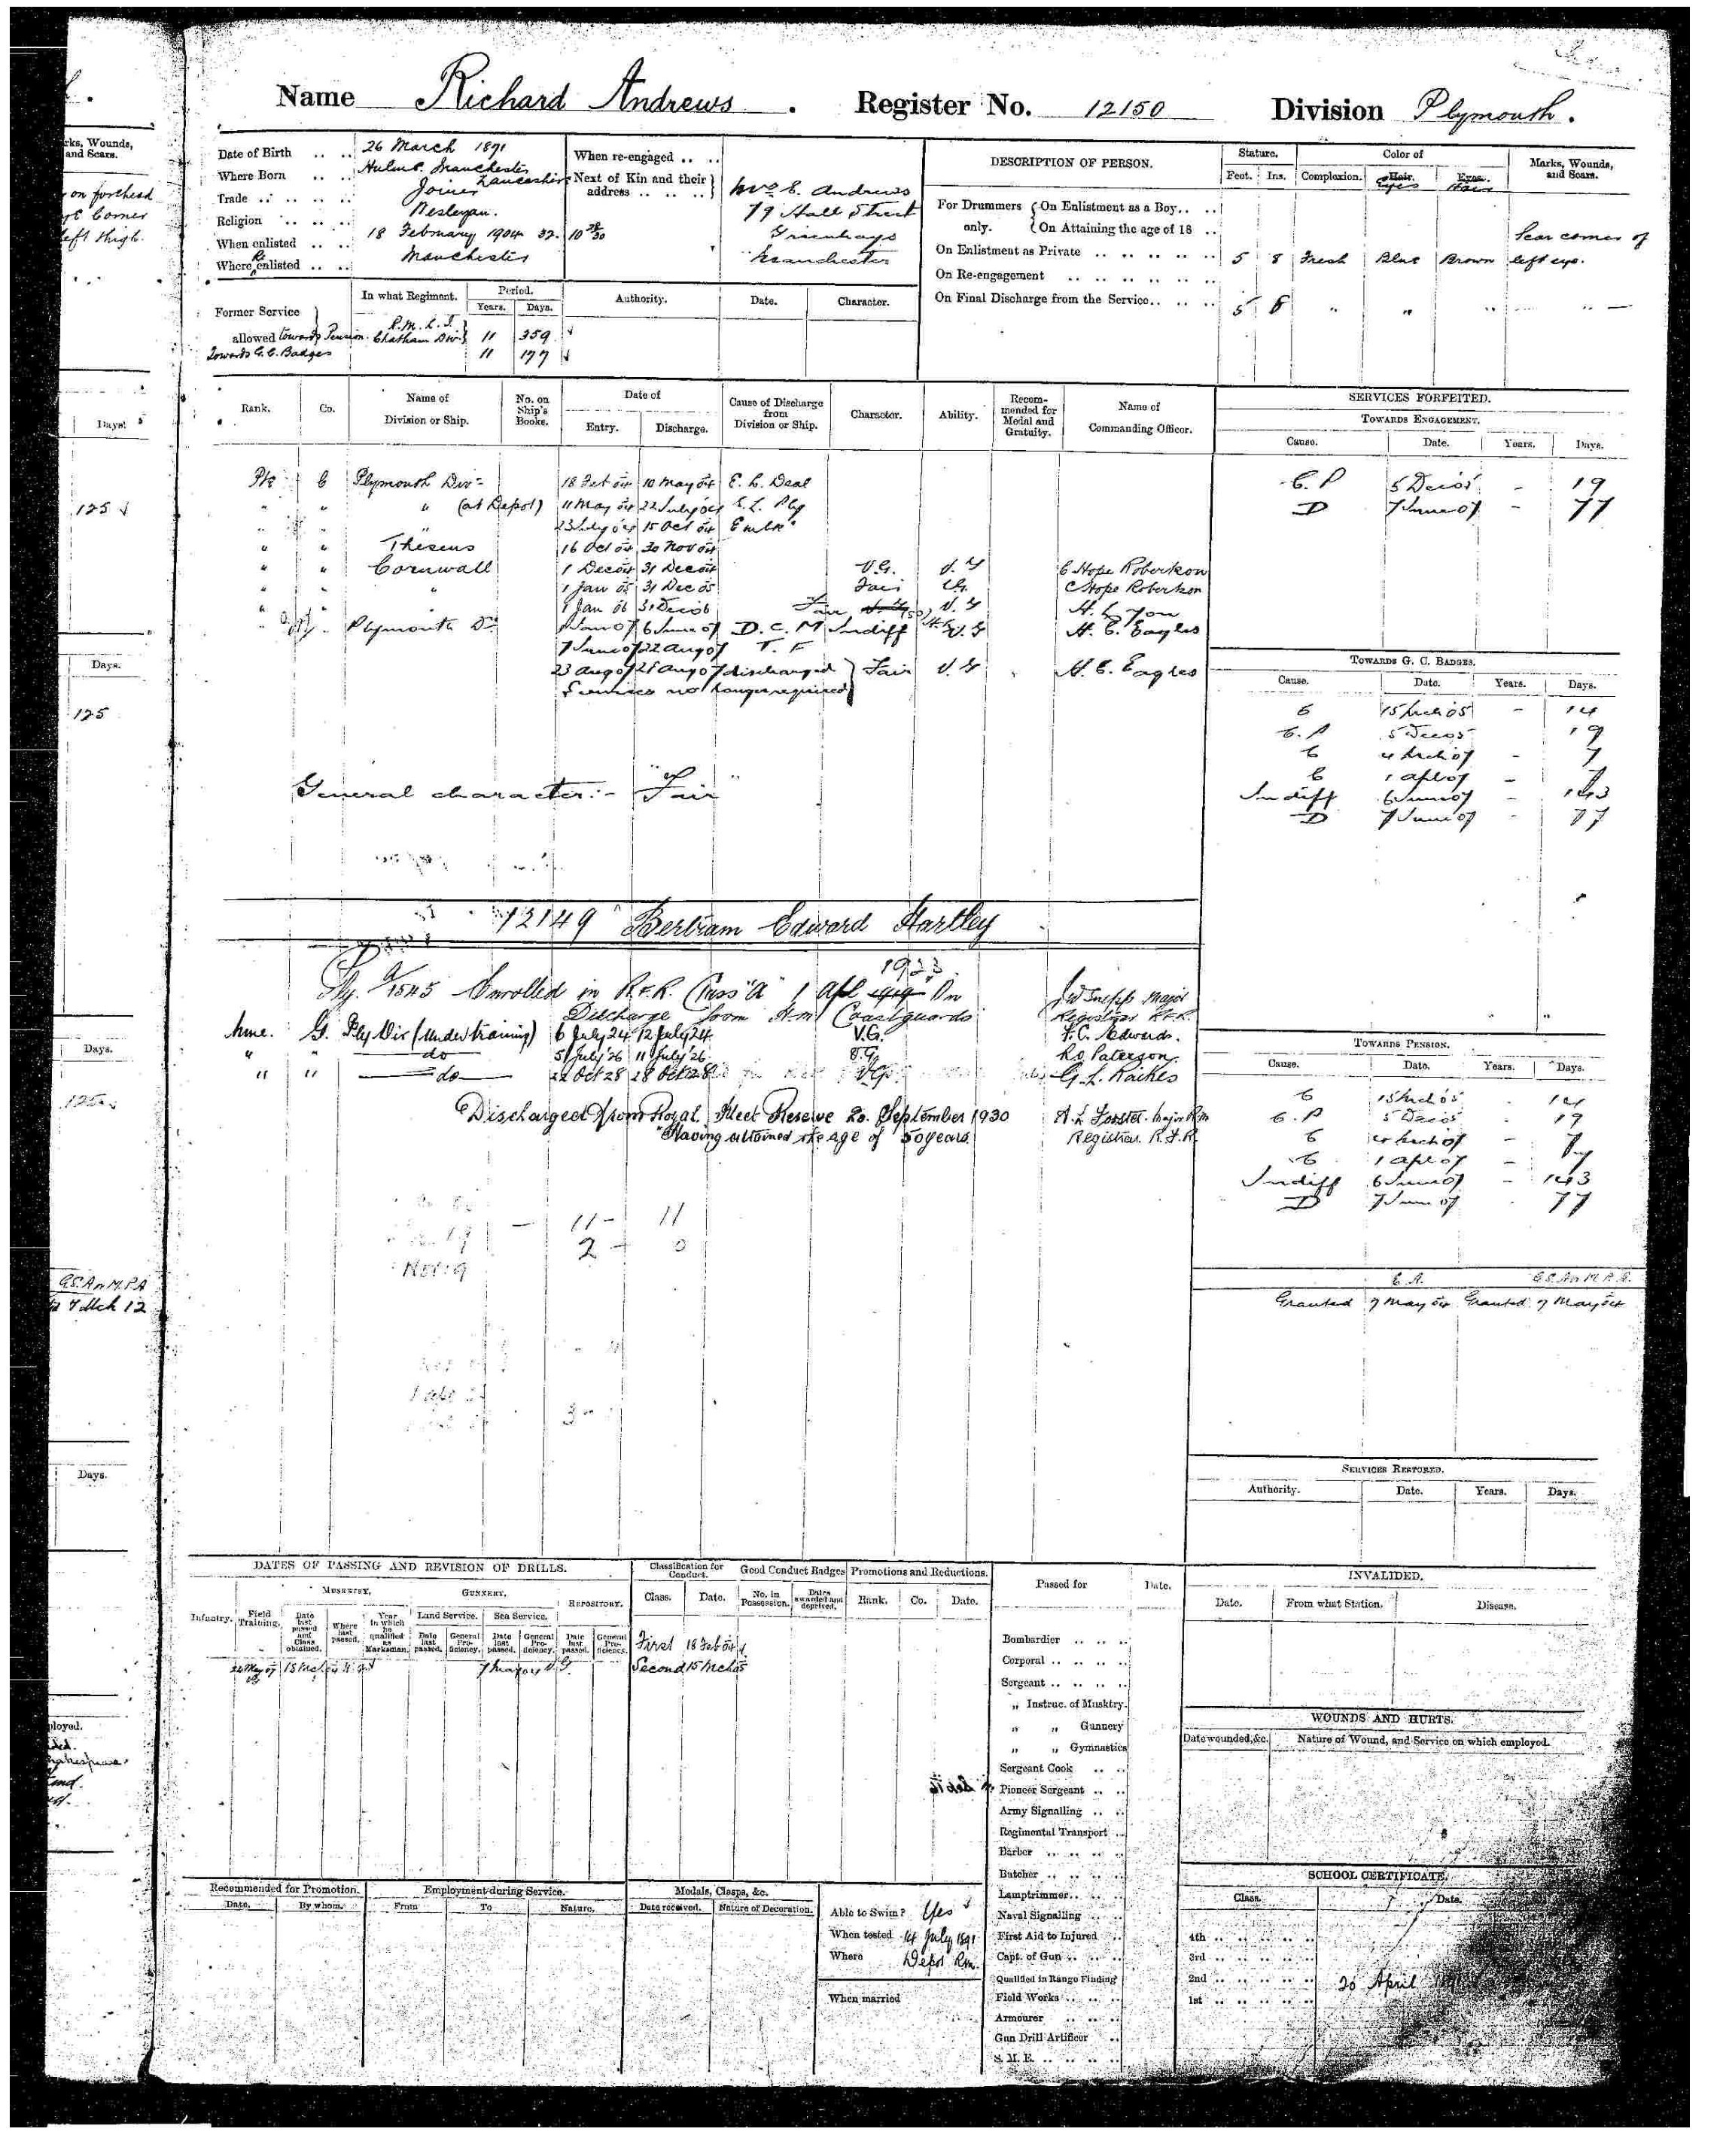 Name Richard Andrews . Register No. 12150 Division Plymouth .
rks, Wounds, and Scars.
on forehead
left thigh.
Date of Birth .. .. 26 March 1871
Where Born .. .. Hulme Manchester Lancashire
Trade .. .. .. .. Joiner
Religion .. .. .. Wesleyan.
When enlisted .. .. 18 February 1904
Where Re enlisted .. .. Manchester
When re-engaged .. ..
Next of Kin and their address .. .. .. Mrs E. Andrews
79 Hall Street
Greenheys
Manchester
DESCRIPTION OF PERSON. Stature. Color of Marks, Wounds, and Scars.
Feet. Ins. Complexion. Hair. Eyes Eyes. Hair
For Drummers only. On Enlistment as a Boy.. ..
On Attaining the age of 18 ..
On Enlistment as Private .. .. .. .. .. 5 8 Fresh Blue Brown Scar corner of left eye.
On Re-engagement .. .. .. .. .. ..
On Final Discharge from the Service.. .. .. 5 8 " " "
In what Regiment. Period. Authority. Date. Character.
Years. Days.
Former Service allowed towards Pension. R.M.L.I. Chatham Div. 11 359
Towards G.C. Badges 11 177
Rank. Co. Name of Division or Ship. No. on Ship's Books. Date of Entry. Discharge. Cause of Discharge from Division or Ship. Character. Ability. Recommended for Medal and Gratuity. Name of Commanding Officer.
Pte C Plymouth Divn 18 Feb 04 10 May 04 E. L. Deal
" " " (at Depot) 11 May 04 22 July 04 E. L. Ply
" " " 23 July 04 15 Oct 04 Embk
" " Theseus 16 Oct 04 30 Nov 04
" " Cornwall 1 Dec 04 31 Dec 04 V.G. V.G C Hope Robertson
" " " 1 Jan 05 31 Dec 05 Fair C Hope Robertson
" 1 Jan 06 31 Dec 06 Fair V.G
Plymouth Dn 1 Jan 07 6 June 07 D. C. M Indiff V.G H. C. Eagles
7 June 07 22 Aug 07
23 Aug 07 28 Aug 07 discharged Fair V.G H. C. Eagles
Services no longer required
General character:- "Fair"
SERVICES FORFEITED.
TOWARDS ENGAGEMENT.
Cause. Date. Years. Days.
C.P 5 Dec 05 - 19
D 7 June 07 - 77
TOWARDS G. C. BADGES.
Cause. Date. Years. Days.
C 15 Mch 05 - 14
C.P 5 Dec 05 19
C 4 Mch 07 - 7
C 1 Apl 07 - 7
Indiff 6 June 07 - 143
D 7 June 07 - 77
12149 Bertram Edward Hartley
Ply. A/1545 Enrolled in R.F.R. Class "A" 1 Apl 1923 1919 On
Discharge from H.M Coastguards
Major
Registrar R.F.R.
Mne. G. Ply Div (Under training) 6 July 24 12 July 24 V.G. F.C. Edwards.
" " do 5 July 26 11 July 26 V.G. R.O. Paterson.
" " do 22 Oct 28 28 Oct 28 V.G. G. L. Raikes
Discharged from Royal Fleet Reserve 20. September 1930
"Having attained the age of 50 years.
A. L. Forster. Major R.M
Registrar. R.F.R
TOWARDS PENSION.
Cause. Date. Years. Days.
C 15 Mch 05 14
C.P 5 Dec 05 19
C 4 Mch 07 - 7
C 1 Apl 07 - 7
Indiff 6 June 07 - 143
D 7 June 07 77
11 - 11
2 - 0
G.S.A or M.P.A
7 Mch 12
Granted 7 May 04 Granted 7 May 04
SERVICES RESTORED.
Authority. Date. Years. Days.
DATES OF PASSING AND REVISION OF DRILLS.
MUSKETRY. GUNNERY. REPOSITORY.
Infantry. Field Training. Date last passed and Class obtained. Where last passed. Year in which he qualified as Marksman. Land Service. Sea Service.
Date last passed. General Proficiency. Date last passed. General Proficiency. Date last passed. General Proficiency.
Classification for Conduct. Good Conduct Badges Promotions and Reductions.
Class. Date. No. in Possession. Dates awarded and deprived. Rank. Co. Date.
First 18 Feb 04
Second 15 Mch 05
Passed for Date.
Bombardier .. .. ..
Corporal .. .. .. ..
Sergeant .. .. .. ..
" Instruc. of Musktry.
" " Gunnery
" " Gymnastics
Sergeant Cook .. ..
Pioneer Sergeant .. ..
Army Signalling .. ..
Regimental Transport ..
Barber .. .. .. ..
Butcher .. .. .. ..
Lamptrimmer.. .. ..
Naval Signalling .. ..
First Aid to Injured ..
Capt. of Gun .. .. ..
Qualified in Range Finding
Field Works .. .. ..
Armourer .. .. ..
Gun Drill Artificer ..
S. M. E. .. .. .. ..
INVALIDED.
Date. From what Station. Disease.
WOUNDS AND HURTS.
Date wounded, &c. Nature of Wound, and Service on which employed.
SCHOOL CERTIFICATE.
Class. Date.
4th .. .. .. .. ..
3rd .. .. .. .. ..
2nd .. .. .. .. .. 20 April
1st .. .. .. .. ..
Recommended for Promotion. Employment during Service. Medals, Clasps, &c.
Date. By whom. From To Nature. Date received. Nature of Decoration.
Able to Swim? Yes
When tested 14 July 1891
Where Depot Rm.
When married
Days.
125
Days.
125
Days.
125
Days.
ployed.